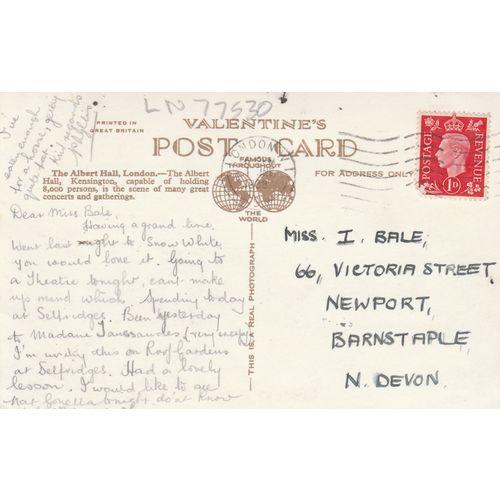 LN 77530
I've
easily enough
for a phone, going
quite fast.
Kind regards
PRINTED IN
GREAT BRITAIN
VALENTINE'S
POST CARD
FAMOUS
THROUGHOUT
THE
WORLD
FOR ADDRESS ONLY
LONDON
POSTAGE
REVENUE
1D
The Albert Hall, London.—The Albert
Hall, Kensington, capable of holding
8,000 persons, is the scene of many great
concerts and gatherings.
—THIS IS A REAL PHOTOGRAPH
Dear Miss Bale,
Having a grand time.
Went last night to Snow White,
you would love it. Going to
a Theatre tonight, can't make
up mind which. Spending today
at Selfridges. Been yesterday
to Madame Taussaudes (very creepy)
I'm writing this on Roof Gardens
at Selfridges. Had a lovely
lesson. I would like to see
Nat Gonella tonight do'nt know
MISS. I. BALE,
66, VICTORIA STREET
NEWPORT,
BARNSTAPLE
N. DEVON.